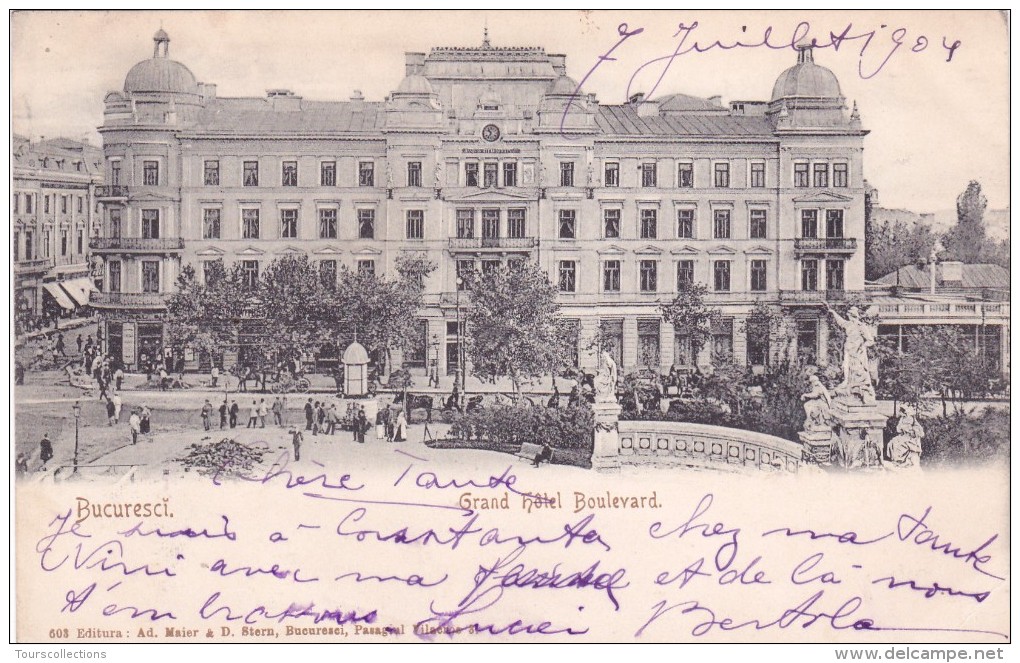 7 Juillet 1904
Chère Tante
Bucuresci. Grand Hôtel Boulevard.
Je suis à Constanta chez ma tante
Nini avec ma et de là nous
t'embrassons Lucici Bertola
603 Editura: Ad. Maier & D. Stern, Bucuresci, Pasagiul Vilacros
Tourscollections
www.delcampe.net